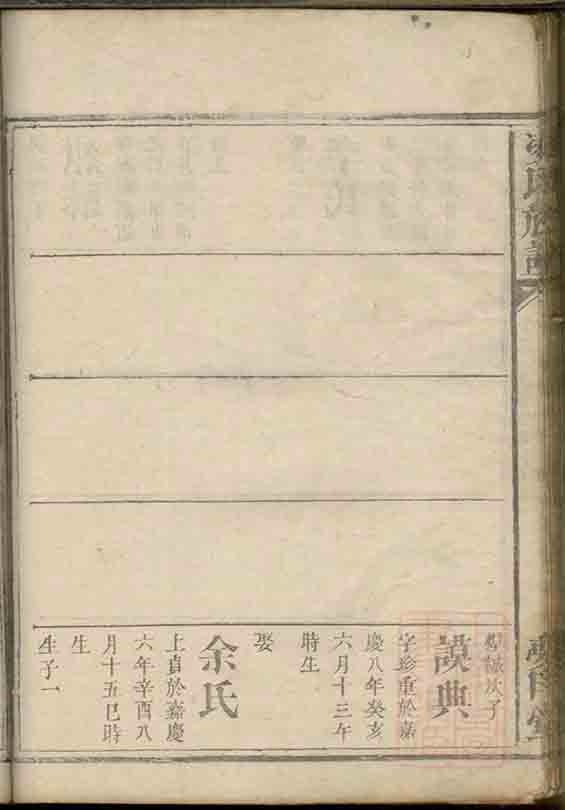 氏族譜
次子
謨典
字珍重於嘉
慶八年癸亥
六月十三午
時生
娶
余氏
上貞於嘉慶
六年辛酉八
月十五巳時
生
生子一